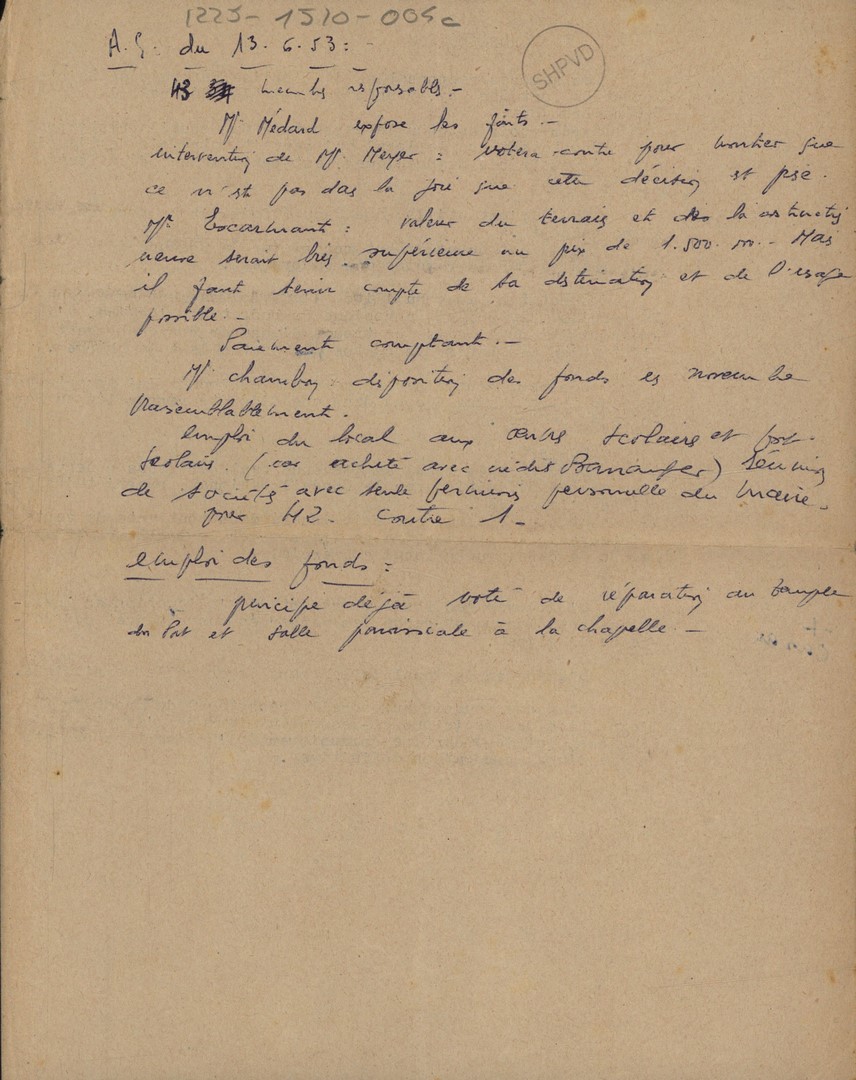 1223-1510-004c
A.G. du 13.6.53 :
SHPVD
43 membres responsables.-
Mr Médard expose les faits.-
intervention de Mr. Meyer : votera contre pour montrer que
ce n'est pas dans la joie que cette décision est prise.
Mr Escarmant : valeur du terrain et des la construction
neuve serait très supérieure au prix de 1.500.000.- Mais
il faut tenir compte de sa destination et de l'usage
possible.-
Paiement comptant.-
Mr chambon : disposition des fonds en novembre
vraisemblablement.
emploi du local aux œuvres scolaires et post-
scolaires. (car acheté avec crédits Baranger) réunion
de sociétés avec seule permission personnelle du maire.
pour 42. contre 1-
emploi des fonds :
principe déjà voté de réparation au temple
du et salle paroissiale à la chapelle -